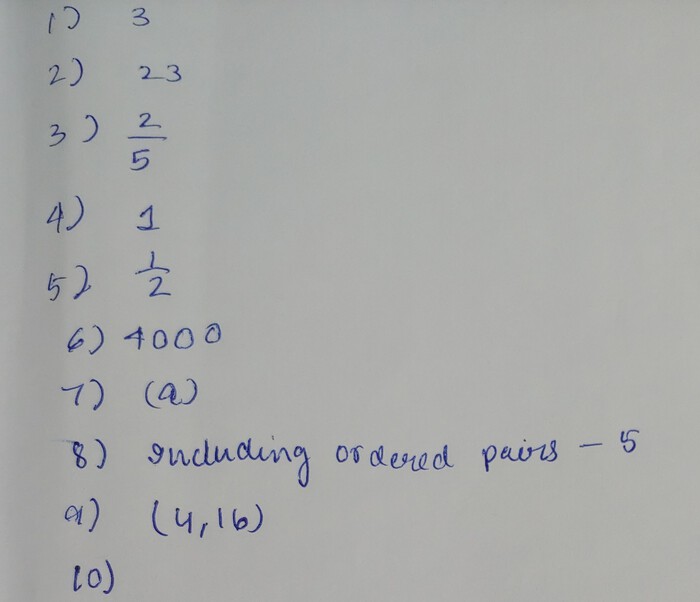 1) 3
2) 23
3) 2/5
4) 1
5) 1/2
6) 4000
7) (a)
8) including ordered pairs - 5
9) (4,16)
10)